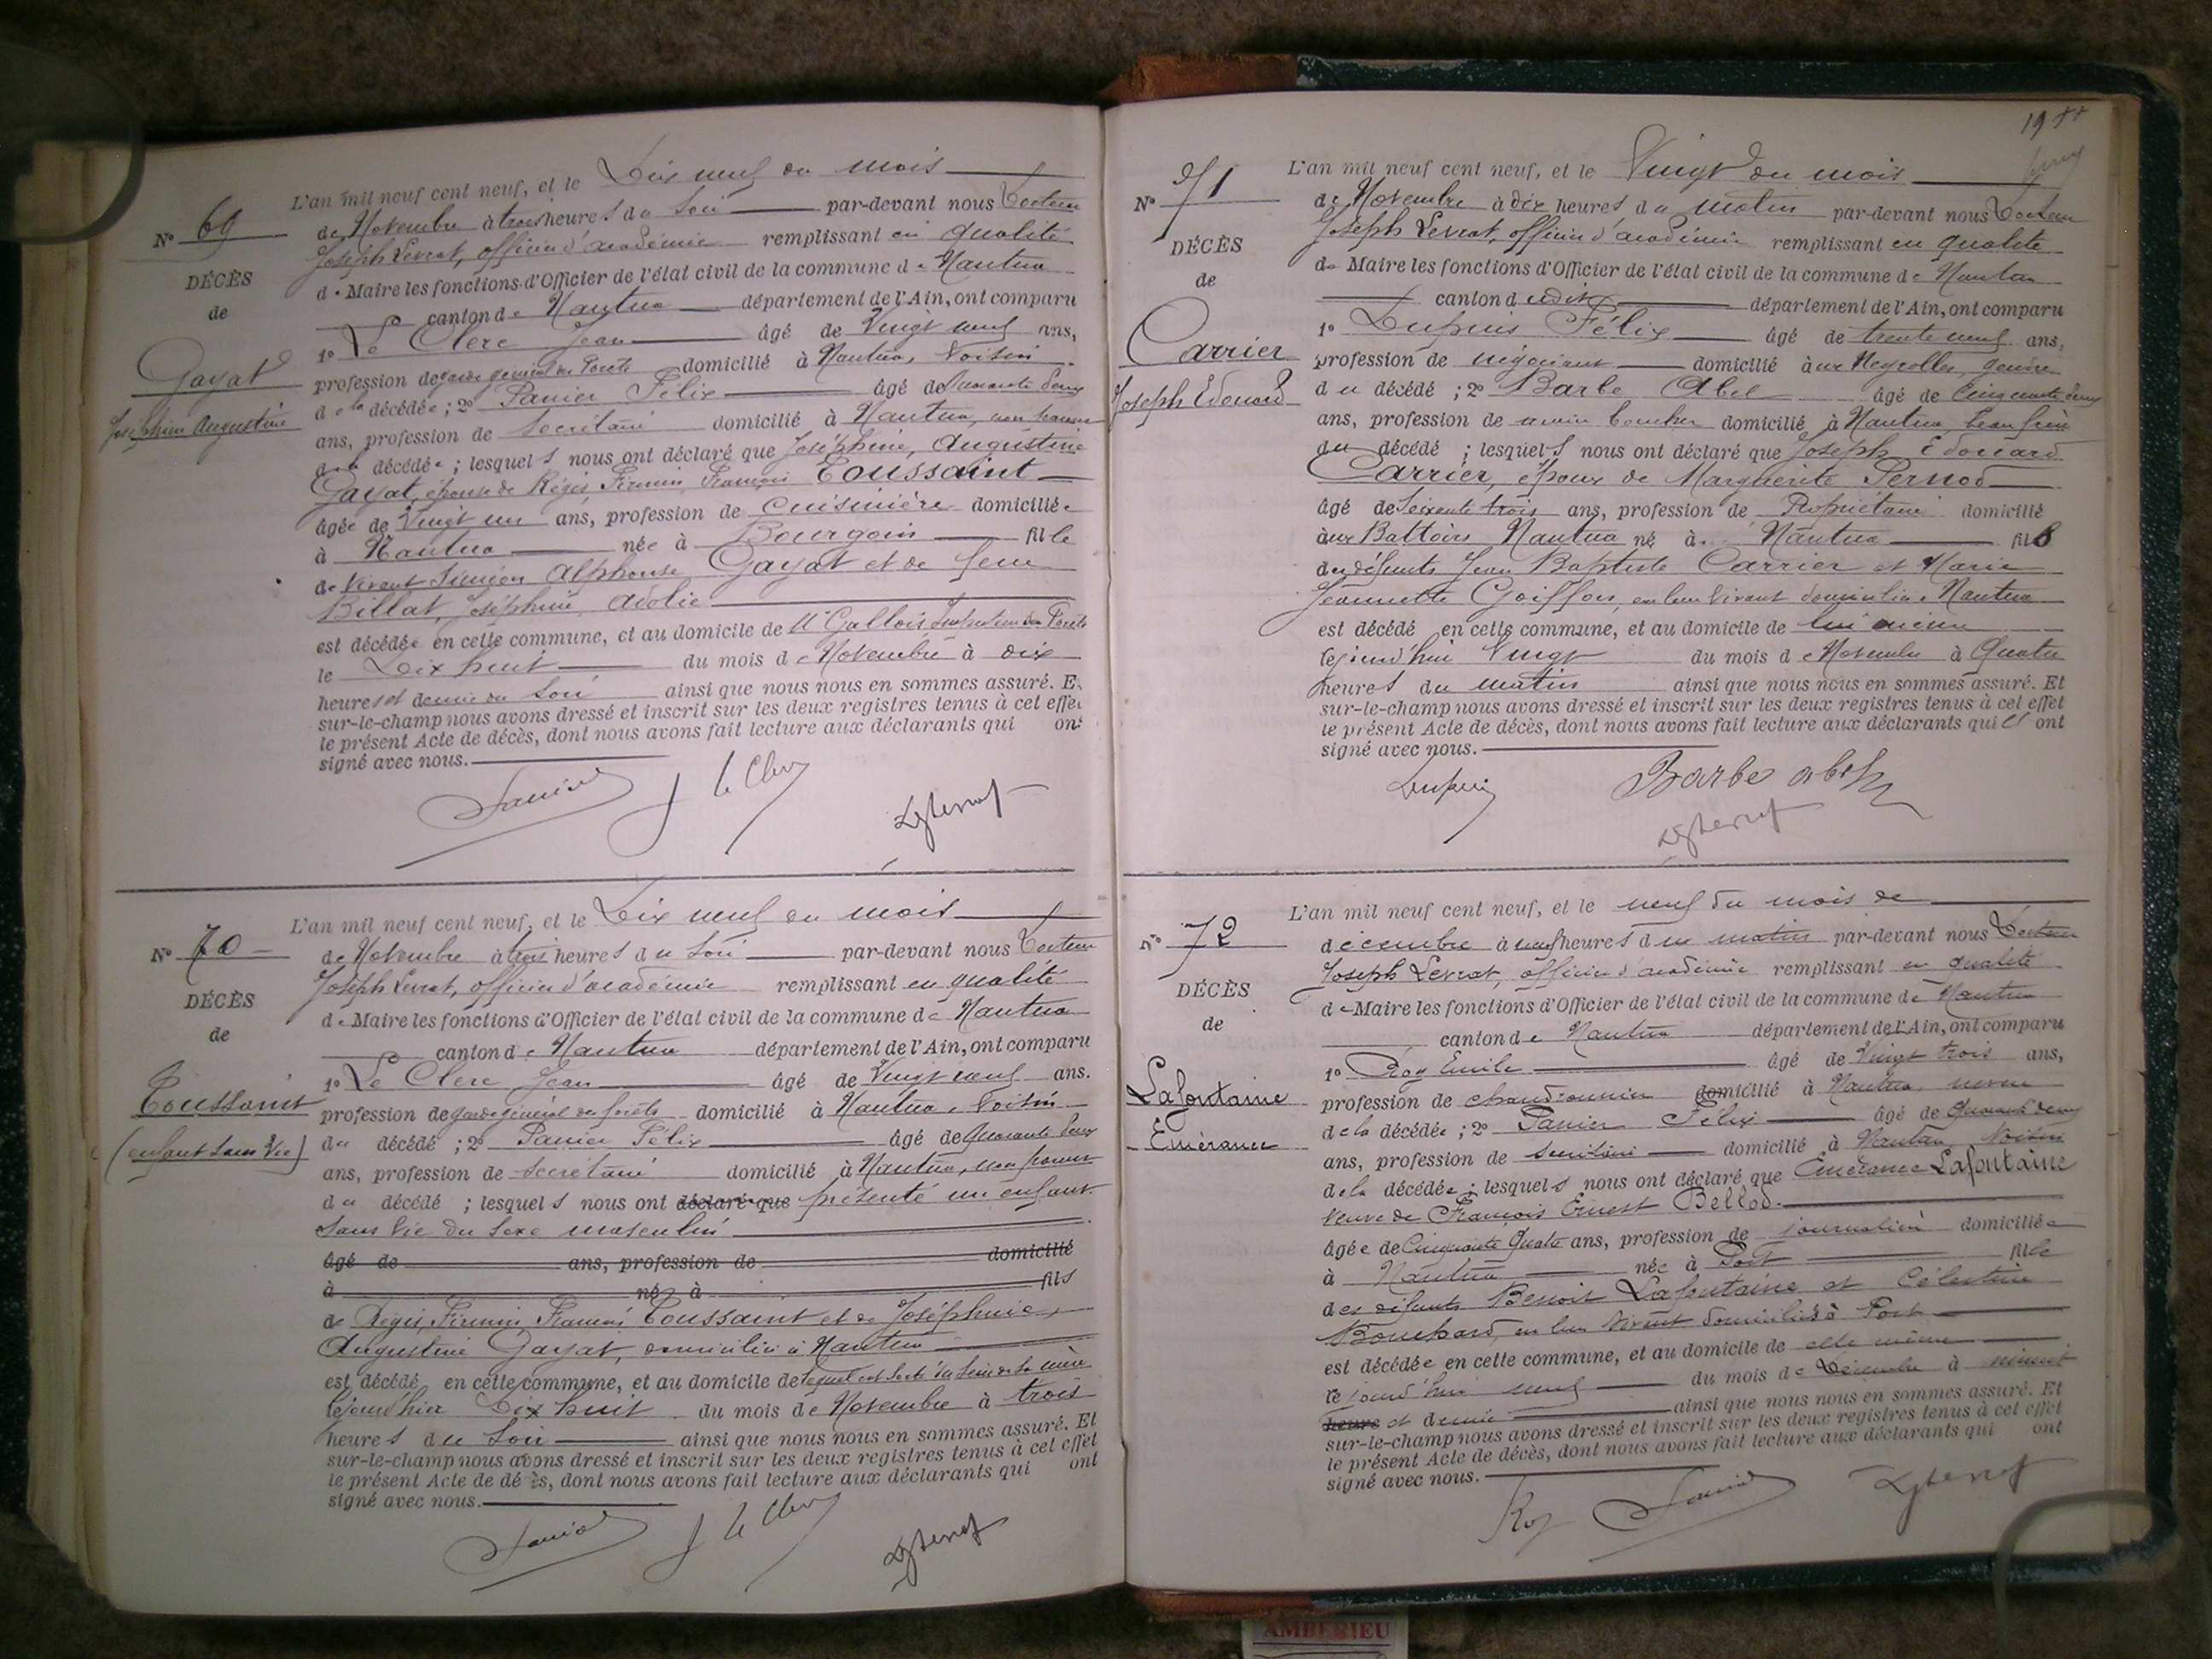 N° 69
DÉCÈS
de
Gayat
Joséphine Augustine
L'an mil neuf cent neuf, et le Dix neuf du mois
de Novembre à trois heures du soir par-devant nous Docteur
Joseph Levrat, officier d'académie remplissant en qualité
de Maire les fonctions d'Officier de l'état civil de la commune de Nantua
canton de Nantua département de l'Ain, ont comparu
1° Le Clerc Jean âgé de Vingt neuf ans,
profession de garde général des forêts domicilié à Nantua, Voisin
de la décédée ; 2° Panier Félix âgé de quarante deux
ans, profession de secrétaire domicilié à Nantua, non parent
de la décédée ; lesquels nous ont déclaré que Joséphine, Augustine
Gayat, épouse de Régis, Firmin, François Toussaint
âgée de Vingt un ans, profession de Cuisinière domiciliée
à Nantua née à Bourgoin fille
de Vivant Siméon Alphonse Gayat et de feue
Billat, Joséphine, Adolie
est décédée en cette commune, et au domicile de Mr Gallois Inspecteur des Forêts
le Dix huit du mois de Novembre à dix
heures et demie du soir ainsi que nous nous en sommes assuré. Et
sur-le-champ nous avons dressé et inscrit sur les deux registres tenus à cet effet
le présent Acte de décès, dont nous avons fait lecture aux déclarants qui ont
signé avec nous.
Panier J Le Clerc
N° 70
DÉCÈS
de
Toussaint
(enfant sans Vie)
L'an mil neuf cent neuf, et le Dix neuf du mois
de Novembre à trois heures du soir par-devant nous Docteur
Joseph Levrat, officier d'académie remplissant en qualité
de Maire les fonctions d'Officier de l'état civil de la commune de Nantua
canton de Nantua département de l'Ain, ont comparu
1° Le Clerc Jean âgé de Vingt neuf ans.
profession de garde général des forêts domicilié à Nantua, Voisin
du décédé ; 2° Panier Félix âgé de Quarante deux
ans, profession de secrétaire domicilié à Nantua, non parent
du décédé ; lesquels nous ont déclaré que présenté un enfant
sans vie du sexe masculin
âgé de ans, profession de domicilié
à né à fils
de Régis, Firmin, François Toussaint et de Joséphine,
Augustine Gayat, domiciliés à Nantua
est décédé en cette commune, et au domicile de lequel est sorti du sein de sa mère
le jour d'hier Dix huit du mois de Novembre à trois
heures du soir ainsi que nous nous en sommes assuré. Et
sur-le-champ nous avons dressé et inscrit sur les deux registres tenus à cet effet
le présent Acte de décès, dont nous avons fait lecture aux déclarants qui ont
signé avec nous.
Panier J Le Clerc
19
N° 71
DÉCÈS
de
Carrier
Joseph Edouard
L'an mil neuf cent neuf, et le Vingt du mois
de Novembre à dix heures du matin par-devant nous Docteur
Joseph Levrat, officier d'académie remplissant en qualité
de Maire les fonctions d'Officier de l'état civil de la commune de Nantua
canton dudit département de l'Ain, ont comparu
1° Dupuis Félix âgé de trente neuf ans,
profession de négociant domicilié aux Neyrolles, gendre
du décédé ; 2° Barbe Abel âgé de Cinquante deux
ans, profession de ancien boucher domicilié à Nantua, beau frère
du décédé ; lesquels nous ont déclaré que Joseph Edouard
Carrier, époux de Marguerite Pernod
âgé de Soixante trois ans, profession de Propriétaire domicilié
aux Battoirs Nantua né à Nantua fils
des défunts Jean Baptiste Carrier et Marie
Jeannette Goiffon, en leur vivant domiciliés Nantua
est décédé en cette commune, et au domicile de lui même
le jourd'hui Vingt du mois de Novembre à Quatre
heures du matin ainsi que nous nous en sommes assuré. Et
sur-le-champ nous avons dressé et inscrit sur les deux registres tenus à cet effet
le présent Acte de décès, dont nous avons fait lecture aux déclarants qui ont
signé avec nous.
Dupuis Barbe abel
N° 72
DÉCÈS
de
Lafontaine
Emérance
L'an mil neuf cent neuf, et le neuf du mois de
décembre à neuf heures du matin par-devant nous Docteur
Joseph Levrat, officier d'académie remplissant en qualité
de Maire les fonctions d'Officier de l'état civil de la commune de Nantua
canton de Nantua département de l'Ain, ont comparu
1° Roy Emile âgé de Vingt trois ans,
profession de chaudronnier domicilié à Nantua, neveu
de la décédée ; 2° Panier Félix âgé de Quarante deux
ans, profession de secrétaire domicilié à Nantua, Voisin
de la décédée ; lesquels nous ont déclaré que Emérance Lafontaine
Veuve de François Ernest Bellod.
âgée de Cinquante Quatre ans, profession de journalière domiciliée
à Nantua née à Port fille
des défunts Benoit Lafontaine et Célestine
Bouchard, en leur vivant domiciliés à Port
est décédée en cette commune, et au domicile de elle même
le jourd'hui neuf du mois de Décembre à minuit
heure et demie ainsi que nous nous en sommes assuré. Et
sur-le-champ nous avons dressé et inscrit sur les deux registres tenus à cet effet
le présent Acte de décès, dont nous avons fait lecture aux déclarants qui ont
signé avec nous.
Roy Panier
AMBERIEU